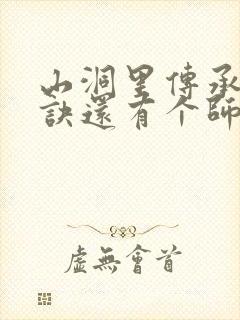 山洞里傳承
訣還有个師
虛無會首